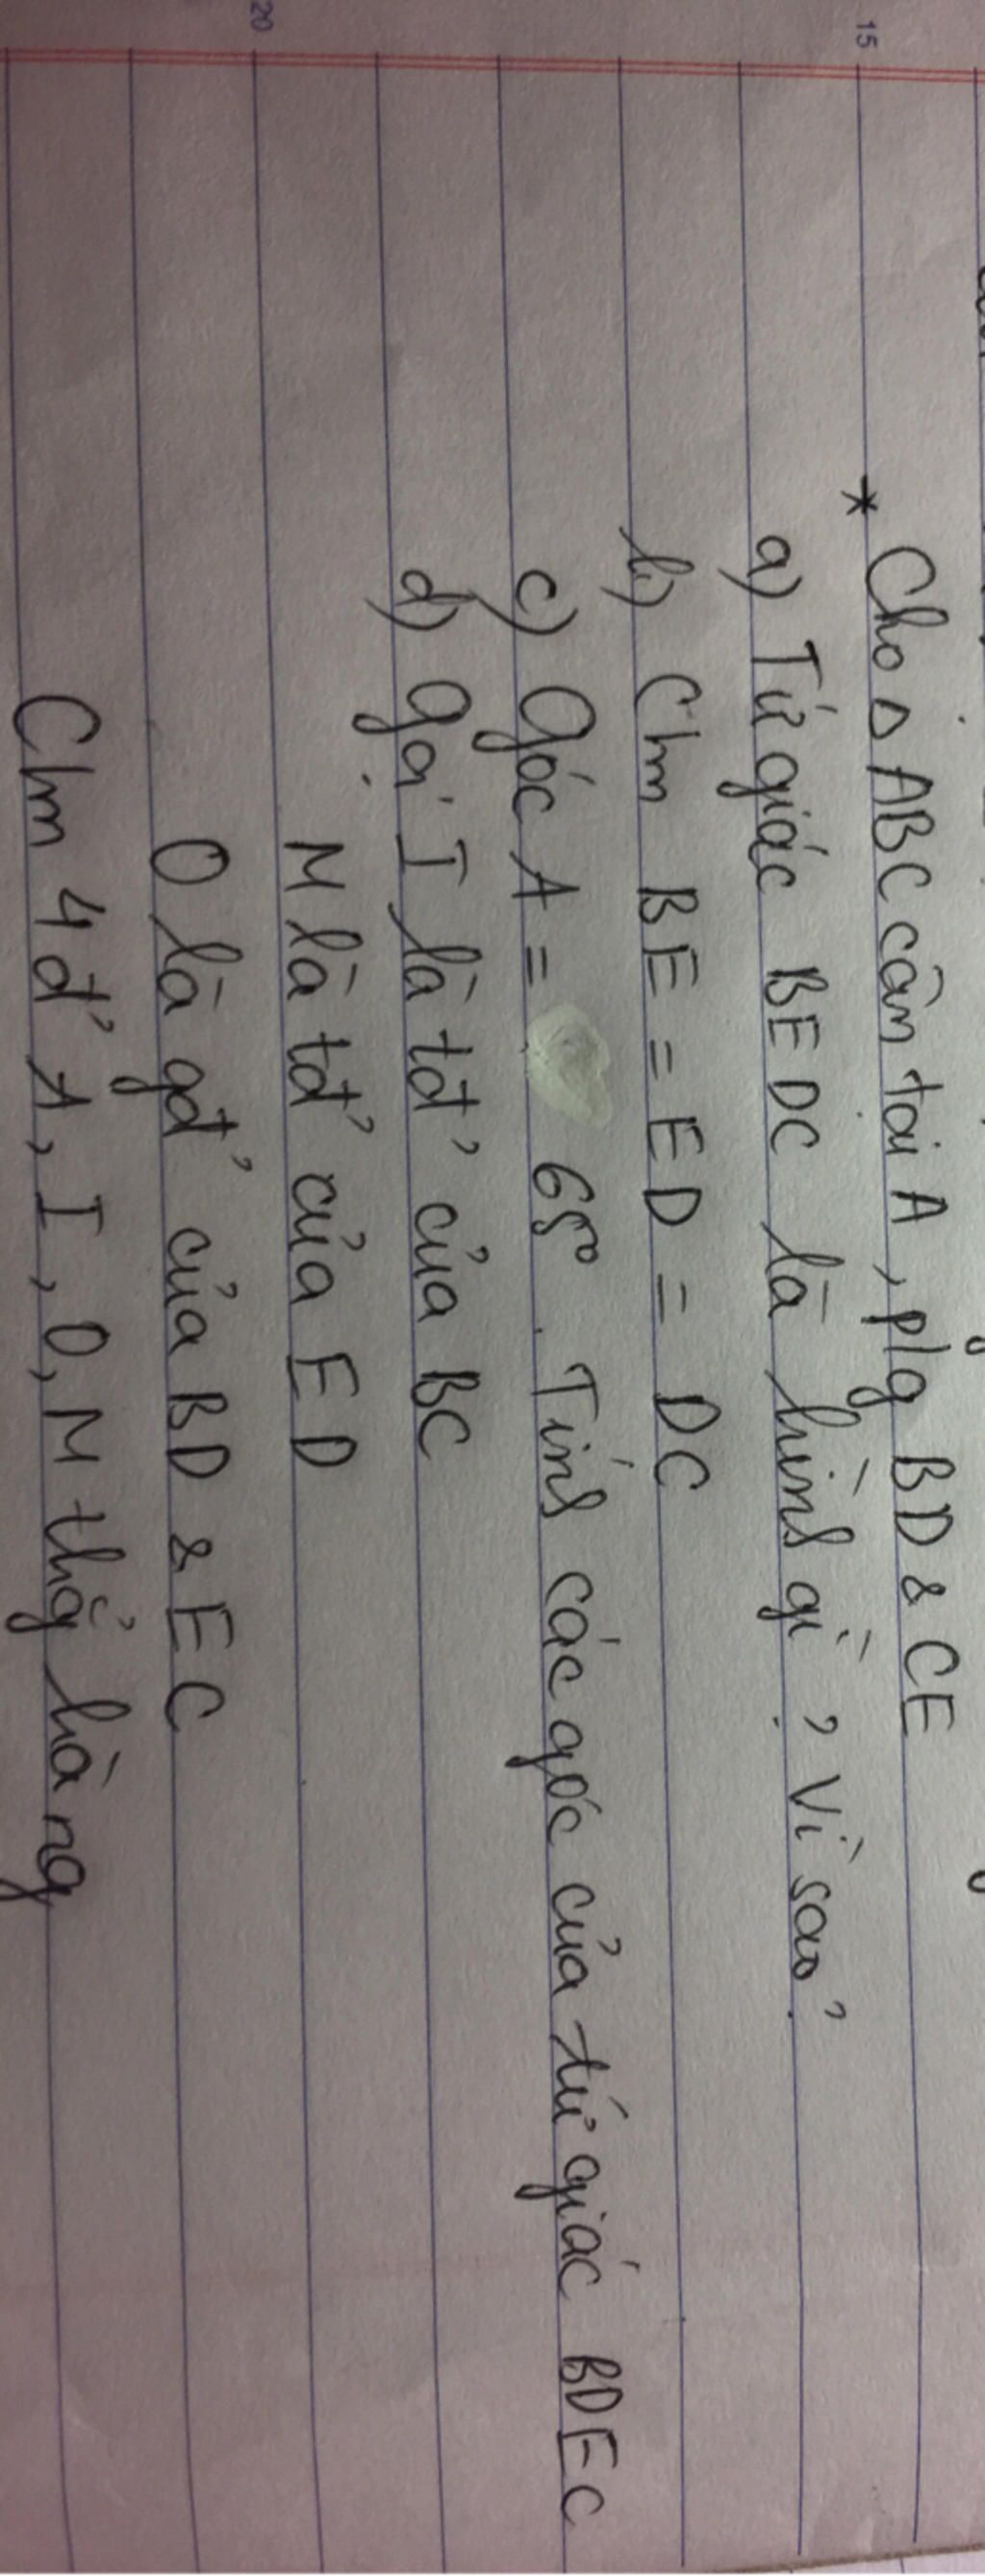 15
* Cho △ ABC cân tại A, p/g BD & CE
a) Tứ giác BEDC là hình gì? Vì sao?
b) Cm BE = ED = DC
c) Góc A = 65°. Tính các góc của tứ giác BDEC
d) Gọi I là tđ' của BC
M là tđ' của ED
20
O là gđ' của BD & EC
Cm 4đ' A, I, O, M thẳg hàng